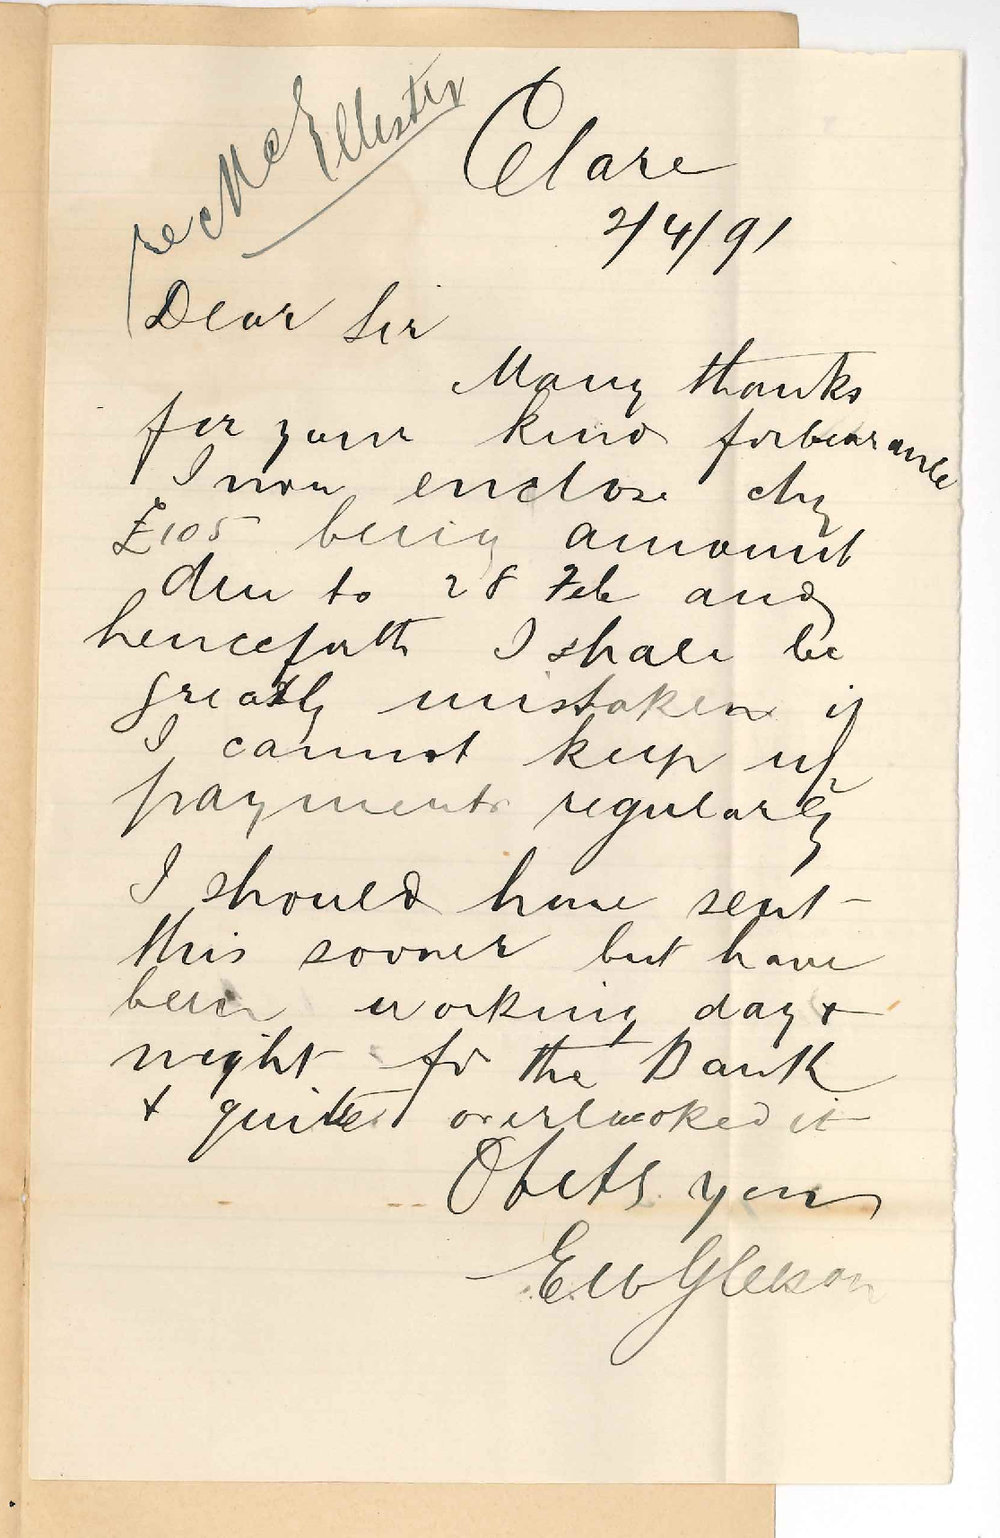 re McEllister
Clare
2/4/91
Dear Sir
Many thanks
for your kind forbearance
I now enclose chq
£105 being amount
due to 28 Feb and
henceforth I shall be
greatly mistaken if
I cannot keep up
payments regularly
I should have sent
this sooner but have
been working day &
night for the Bank
& quite overlooked it
Obetly yours
EW Gleeson